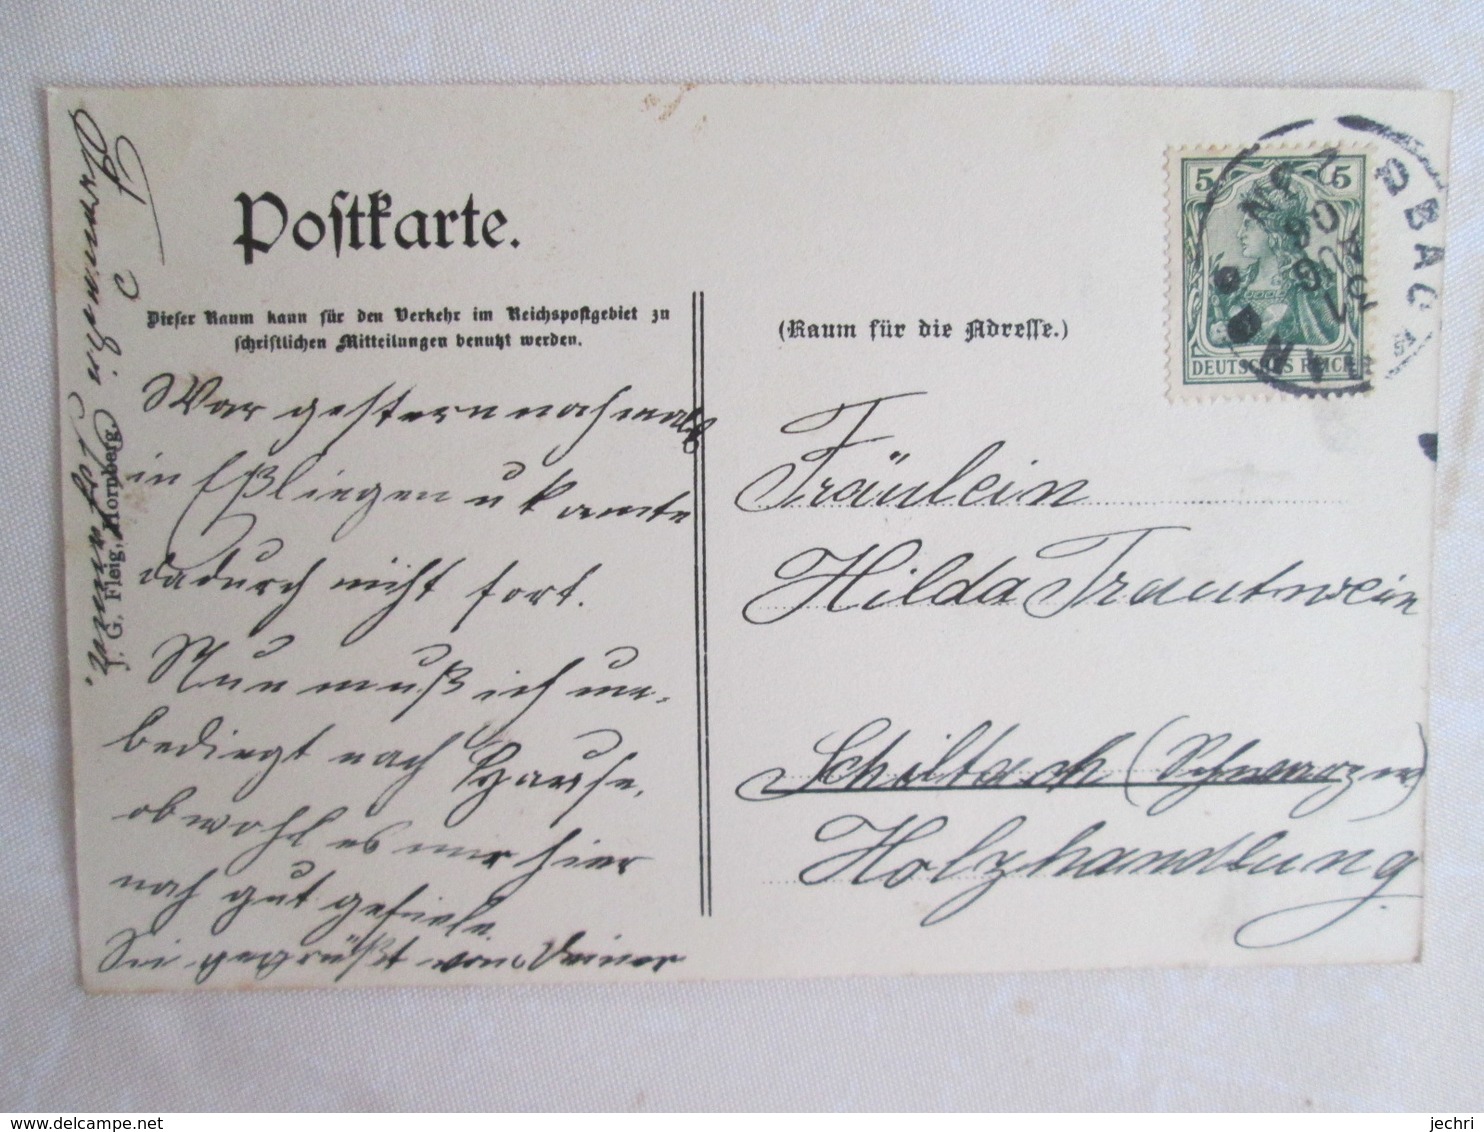 Postkarte.
Dieser Raum kann für den Verkehr im Reichspostgebiet zu
schriftlichen Mitteilungen benutzt werden.
War gestern nochmals
in Eßlingen u konnte
dadurch nicht fort.
Nun muß ich un-
bedingt nach Hause,
obwohl es mir hier
noch gut gefiele.
Sei gegrüßt von Deiner
J. G. Fleig, Hornberg.
(Raum für die Adresse.)
5 5
DEUTSCHES REICH
31
AUG
06
Fräulein
Hilda Trautwein
Schiltach (Schwarzw)
Holzhandlung
jechri
delcampe.net